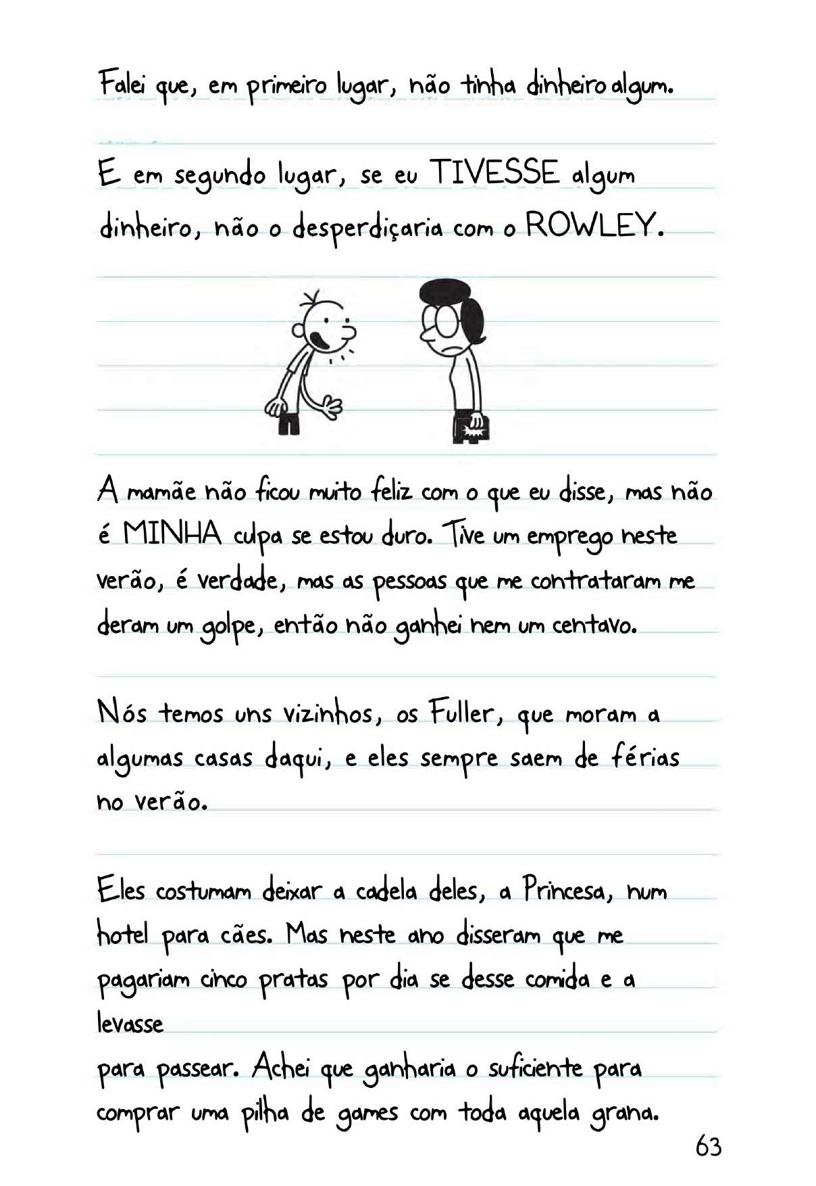 Falei que, em primeiro lugar, não tinha dinheiro algum.
E em segundo lugar, se eu TIVESSE algum
dinheiro, não o desperdiçaria com o ROWLEY.
A mamãe não ficou muito feliz com o que eu disse, mas não
é MINHA culpa se estou duro. Tive um emprego neste
verão, é verdade, mas as pessoas que me contrataram me
deram um golpe, então não ganhei nem um centavo.
Nós temos uns vizinhos, os Fuller, que moram a
algumas casas daqui, e eles sempre saem de férias
no verão.
Eles costumam deixar a cadela deles, a Princesa, num
hotel para cães. Mas neste ano disseram que me
pagariam cinco pratas por dia se desse comida e a
levasse
para passear. Achei que ganharia o suficiente para
comprar uma pilha de games com toda aquela grana.
63